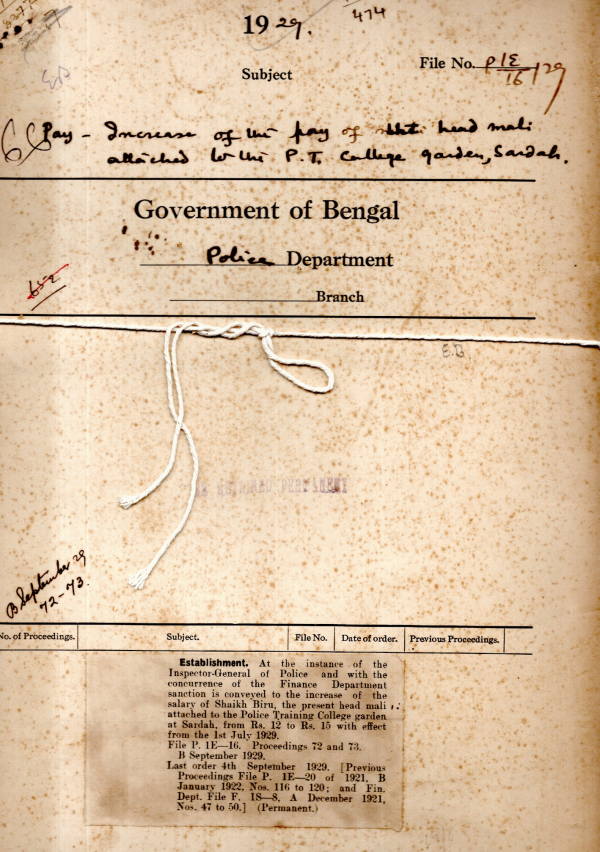 1929.
474
File No. P1E/16/29
Subject
Pay - Increase of the pay of the head mali
attached to the P. T. College garden, Sardah.
Government of Bengal
Police Department
Branch
E.B
B September 29
72-73.
No. of Proceedings. Subject. File No. Date of order. Previous Proceedings.
Establishment. At the instance of the
Inspector-General of Police and with the
concurrence of the Finance Department
sanction is conveyed to the increase of the
salary of Shaikh Biru, the present head mali
attached to the Police Training College garden
at Sardah, from Rs. 12 to Rs. 15 with effect
from the 1st July 1929.
File P. 1E—16. Proceedings 72 and 73.
B September 1929.
Last order 4th September 1929. [Previous
Proceedings File P. 1E—20 of 1921, B
January 1922, Nos. 116 to 120; and Fin.
Dept. File F. 1S—8, A December 1921,
Nos. 47 to 50.] (Permanent.)